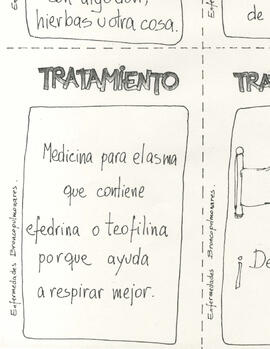 con algodón,
hierbas u otra cosa.
de
TRATAMIENTO
TRA
Medicina para el asma
que contiene
efedrina o teofilina
porque ayuda
a respirar mejor.
De
Enfermedades Broncopulmonares.
Enfermedades Broncopulmonares